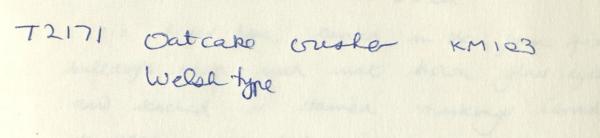 T2171 Oatcake crusher KM103
Welsh type